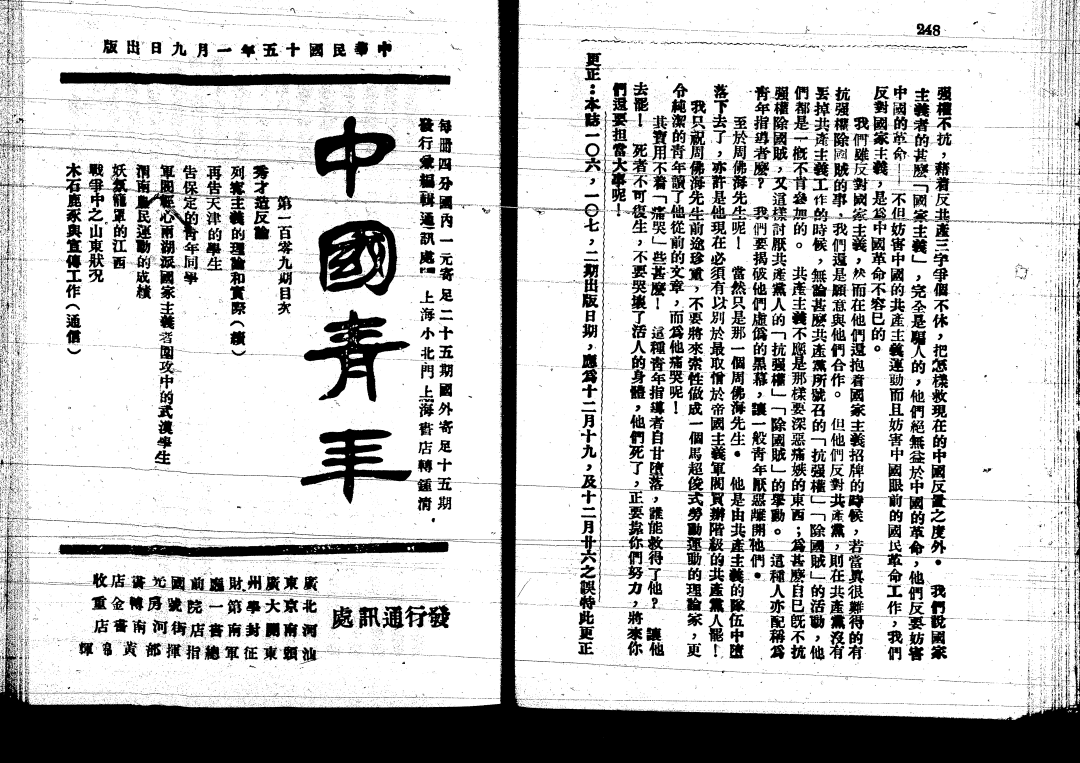 248
強權不抗，藉着反共產三字爭個不休，把怎樣救現在的中國反置之度外。　我們說國家
主義者的甚麼「國家主義」，完全是騙人的，他們絕無益於中國的革命，他們反要妨害
中國的革命——不但妨害中國的共產主義運動而且妨害中國眼前的國民革命工作，我們
反對國家主義，是為中國革命不容已的。
我們雖反對國家主義，然而在他們還抱着國家主義招牌的時候，若當真很難得的有
抗強權除國賊的事，我們還是願意與他們合作。　但他們反對共產黨，則在共產黨沒有
丟掉共產主義工作的時候，無論甚麼共產黨所號召的「抗強權」「除國賊」的活動，他
們都是一概不肯參加的。　共產主義不應是那樣要深惡痛嫉的東西；為甚麼自已旣不抗
強權除國賊，又這樣討厭共產黨人的「抗強權」「除國賊」的舉動。　這種人亦配稱為
青年指導者麼？　我們要揭破他們虛僞的黑幕，讓一般青年厭惡離開他們。
至於周佛海先生呢！　當然只是那一個周佛海先生。　他是由共產主義的隊伍中墮
落下去了，亦許是他現在必須有以別於最取憎於帝國主義軍閥買辦階級的共產黨人罷！
我只祝周佛海先生前途珍重，不要將來索性做成一個馬超俊式勞動運動的理論家，更
令純潔的青年讀了他從前的文章，而為他痛哭呢！
其實用不着「痛哭」些甚麼！　這種青年指導者自甘墮落，誰能救得了他？　讓他
去罷！　死者不可復生，不要哭壞了活人的身體，他們死了，正要靠你們努力，將來你
們還要担當大事呢！
更正：本誌一〇六，一〇七，二期出版日期，應為十二月十九，及十二月廿六之誤特此更正
中華民國十五年一月九日出版
每冊四分國內一元寄足二十五期國外寄足十五期
發行兼編輯通訊處　上海小北門上海書店轉鍾淸
中國青年
第一百零九期目次
秀才造反論
列寧主義的理論和實際（續）
再告天津的學生
告保定的靑年同學
軍閥經心兩湖派國家主義者圍攻中的武漢學生
渭南農民運動的成績
妖氛籠罩的江西
戰爭中之山東狀况
木石鹿豕與宣傳工作（通信）
發行通訊處
廣東廣州財廳前國光書店
北京大學第一院號房轉金重收
河南開封南書店街河南書店
汕頭東征軍總指揮部黃錦輝